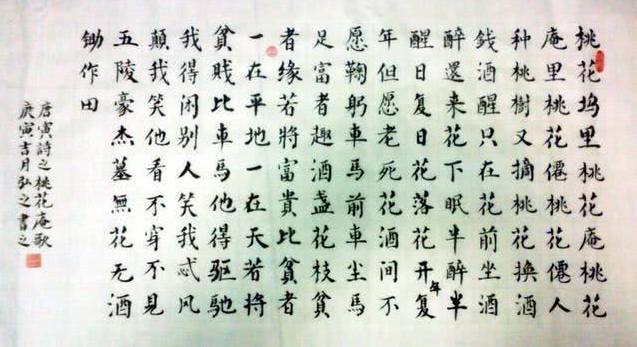 桃花坞里桃花庵桃花
庵里桃花僊桃花僊人
种桃樹又摘桃花换酒
錢酒醒只在花前坐酒
醉還来花下眠半醉半
醒日复日花落花开年复
年但愿老死花酒间不
愿鞠躬車馬前車尘馬
足富者趣酒盏花枝貧
者缘若將富貴比貧者
一在平地一在天若将
貧賤比車馬他得驱馳
我得闲别人笑我忒风
顛我笑他看不穿不見
五陵豪杰墓無花无酒
锄作田
唐寅詩之桃花庵歌
庚寅吉月弘之書之